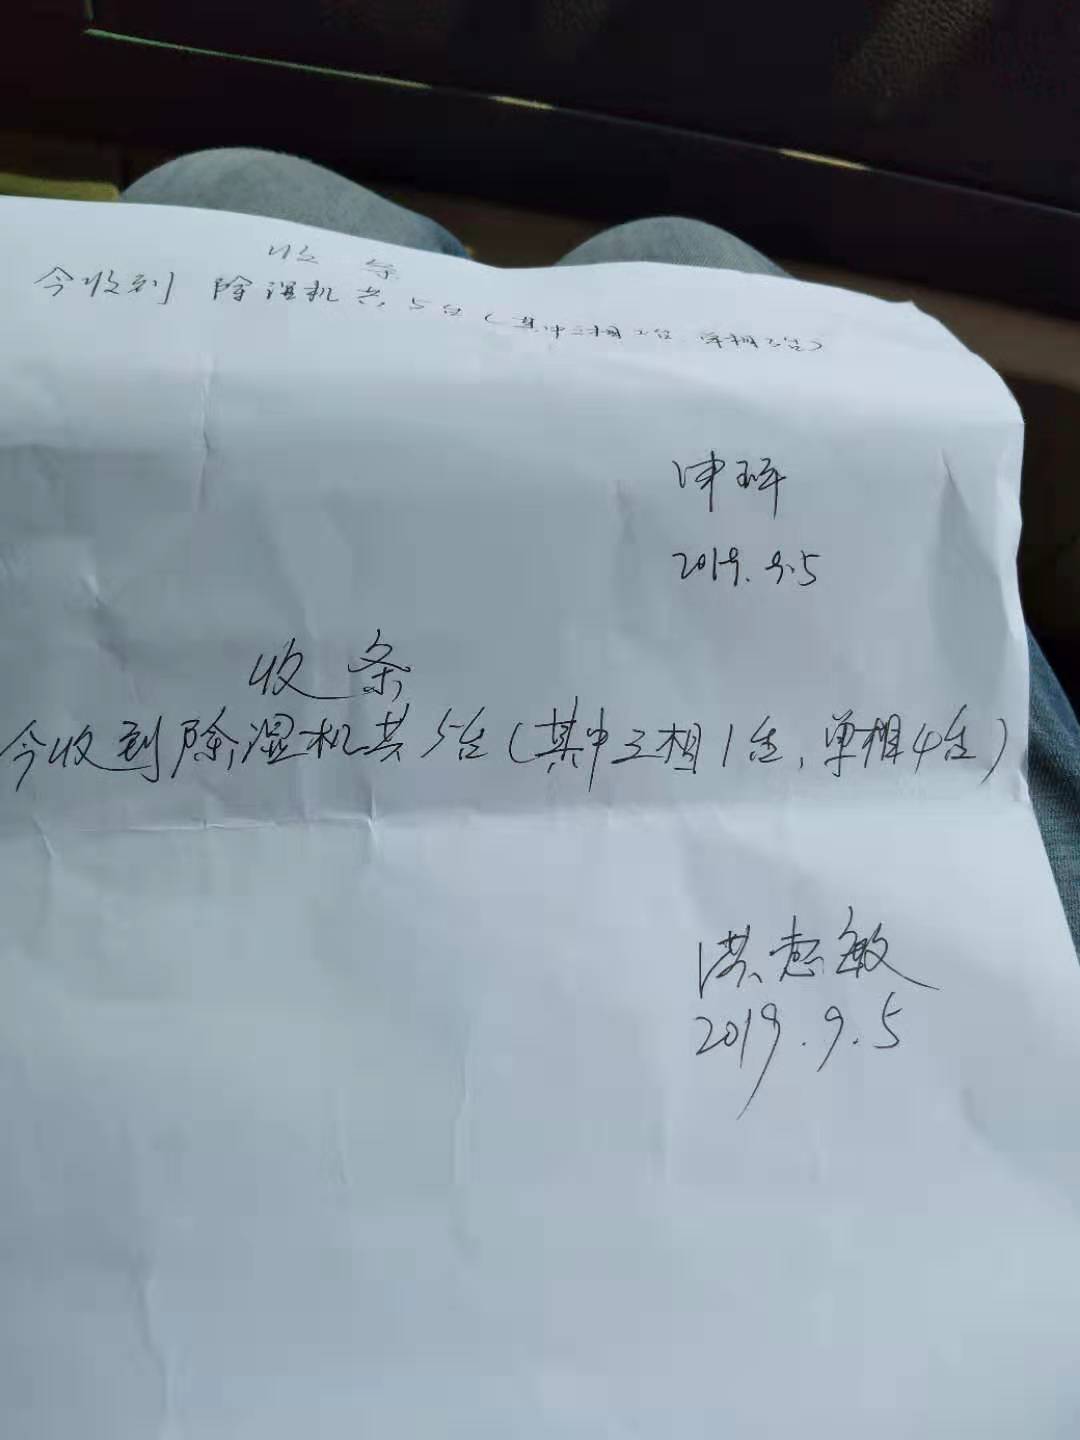 收条
今收到 除湿机共5台(其中三相2台 单相3台)
2019.9.5
收条
今收到除湿机共5台(其中三相1台,单相4台)
洪志敏
2019.9.5